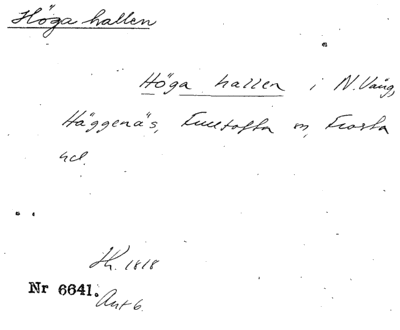 Höga hallen
Höga hallen i N. Vång,
Häggenäs, Fulltofta sn, Frosta
hd.
Hk. 1818
Nr 6641.
Akt 6.